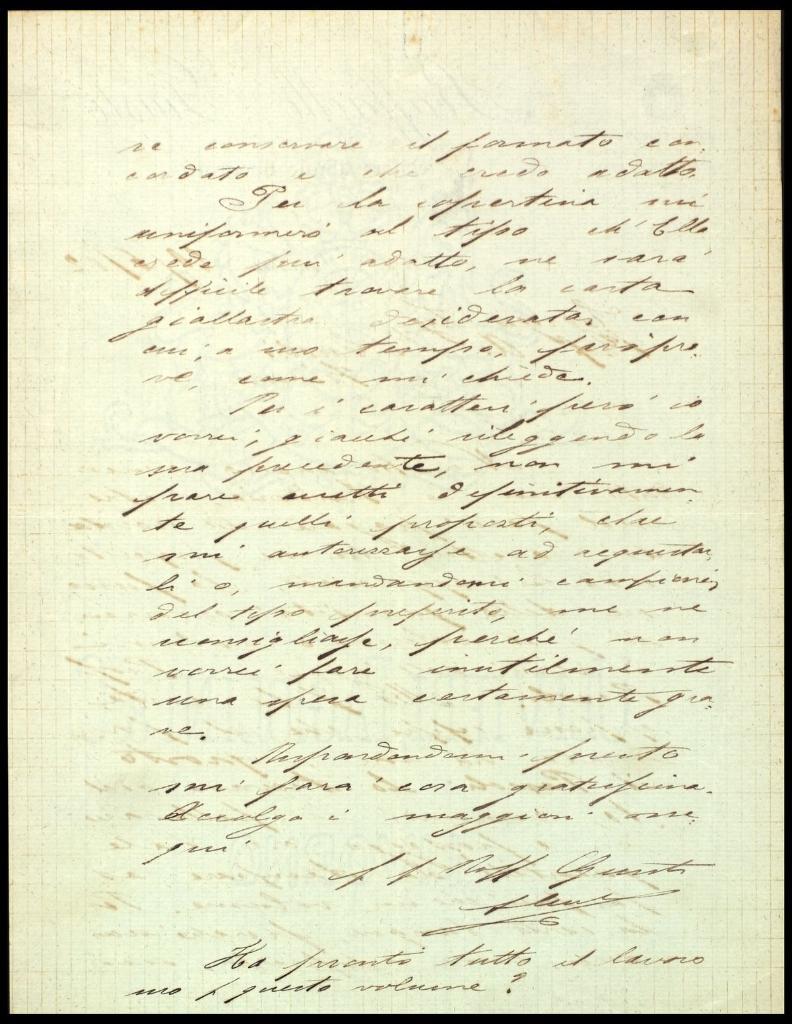 re conservare il formato con
cordato e che credo adatto.
Per la copertina mi
uniformerò al tipo ch'Ella
crede più adatto, ne sarà
difficile trovare la carta
giallastra desiderata, con
cui, a suo tempo, farò pro-
ve, come mi chiede.
Per i caratteri però io
vorrei, giacchè rileggendo la
sua precedente, non mi
pare accetti definitivamen
te quelli proposti, che
mi autorizzasse ad acquistar
li o, mandandomi campioni
del tipo preferito, me ne
consigliasse, perchè non
vorrei fare inutilmente
una spesa certamente gra-
ve.
Rispondendomi presto
mi farà cosa gratissima.
Accolga i maggiori osse-
qui
p p Raff Giusti
Ha pronto tutto il lavoro
suo p questo volume?